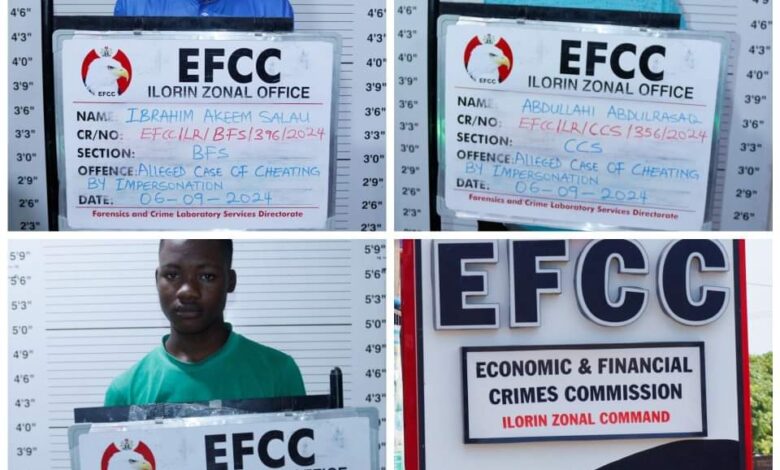 4'6"
4'3"
4'0"
3'9"
3'6"
3'3"
3'0"
2'9"
2'6"
2'3"
EFCC
EFCC
ILORIN ZONAL OFFICE
NAME: IBRAHIM AKEEM SALAU
CR/NO: EFCC/LR/BFS/396/2024
SECTION: BFS
OFFENCE: ALLEGED CASE OF CHEATING
BY IMPERSONATION
DATE: 06-09-2024
Forensics and Crime Laboratory Services Directorate
4'6"
4'3"
4'0"
3'9"
3'6"
3'3"
3'0"
2'9"
2'6"
2'3"
4'6"
4'3"
4'0"
3'9"
3'6"
3'3"
3'0"
2'9"
2'6"
EFCC
EFCC
ILORIN ZONAL OFFICE
NAME: ABDULLAHI ABDULRASAQ
CR/NO: EFCC/LR/CCS/356/2024
SECTION: CCS
OFFENCE: ALLEGED CASE OF CHEATING
BY IMPERSONATION
DATE: 06-09-2024
Forensics and Crime Laboratory Services Directorate
4'6"
4'3"
4'0"
3'9"
3'6"
3'3"
3'0"
2'9"
2'6"
5'9"
5'6"
5'3"
5'0"
4'9"
4'6"
4'3"
4'0"
3'9"
EFCC
OFFICE
5'9"
5'6"
5'3"
5'0"
4'9"
4'6"
4'3"
4'0"
3'9"
EFCC
ECONOMIC & FINANCIAL
CRIMES COMMISSION
ILORIN ZONAL COMMAND